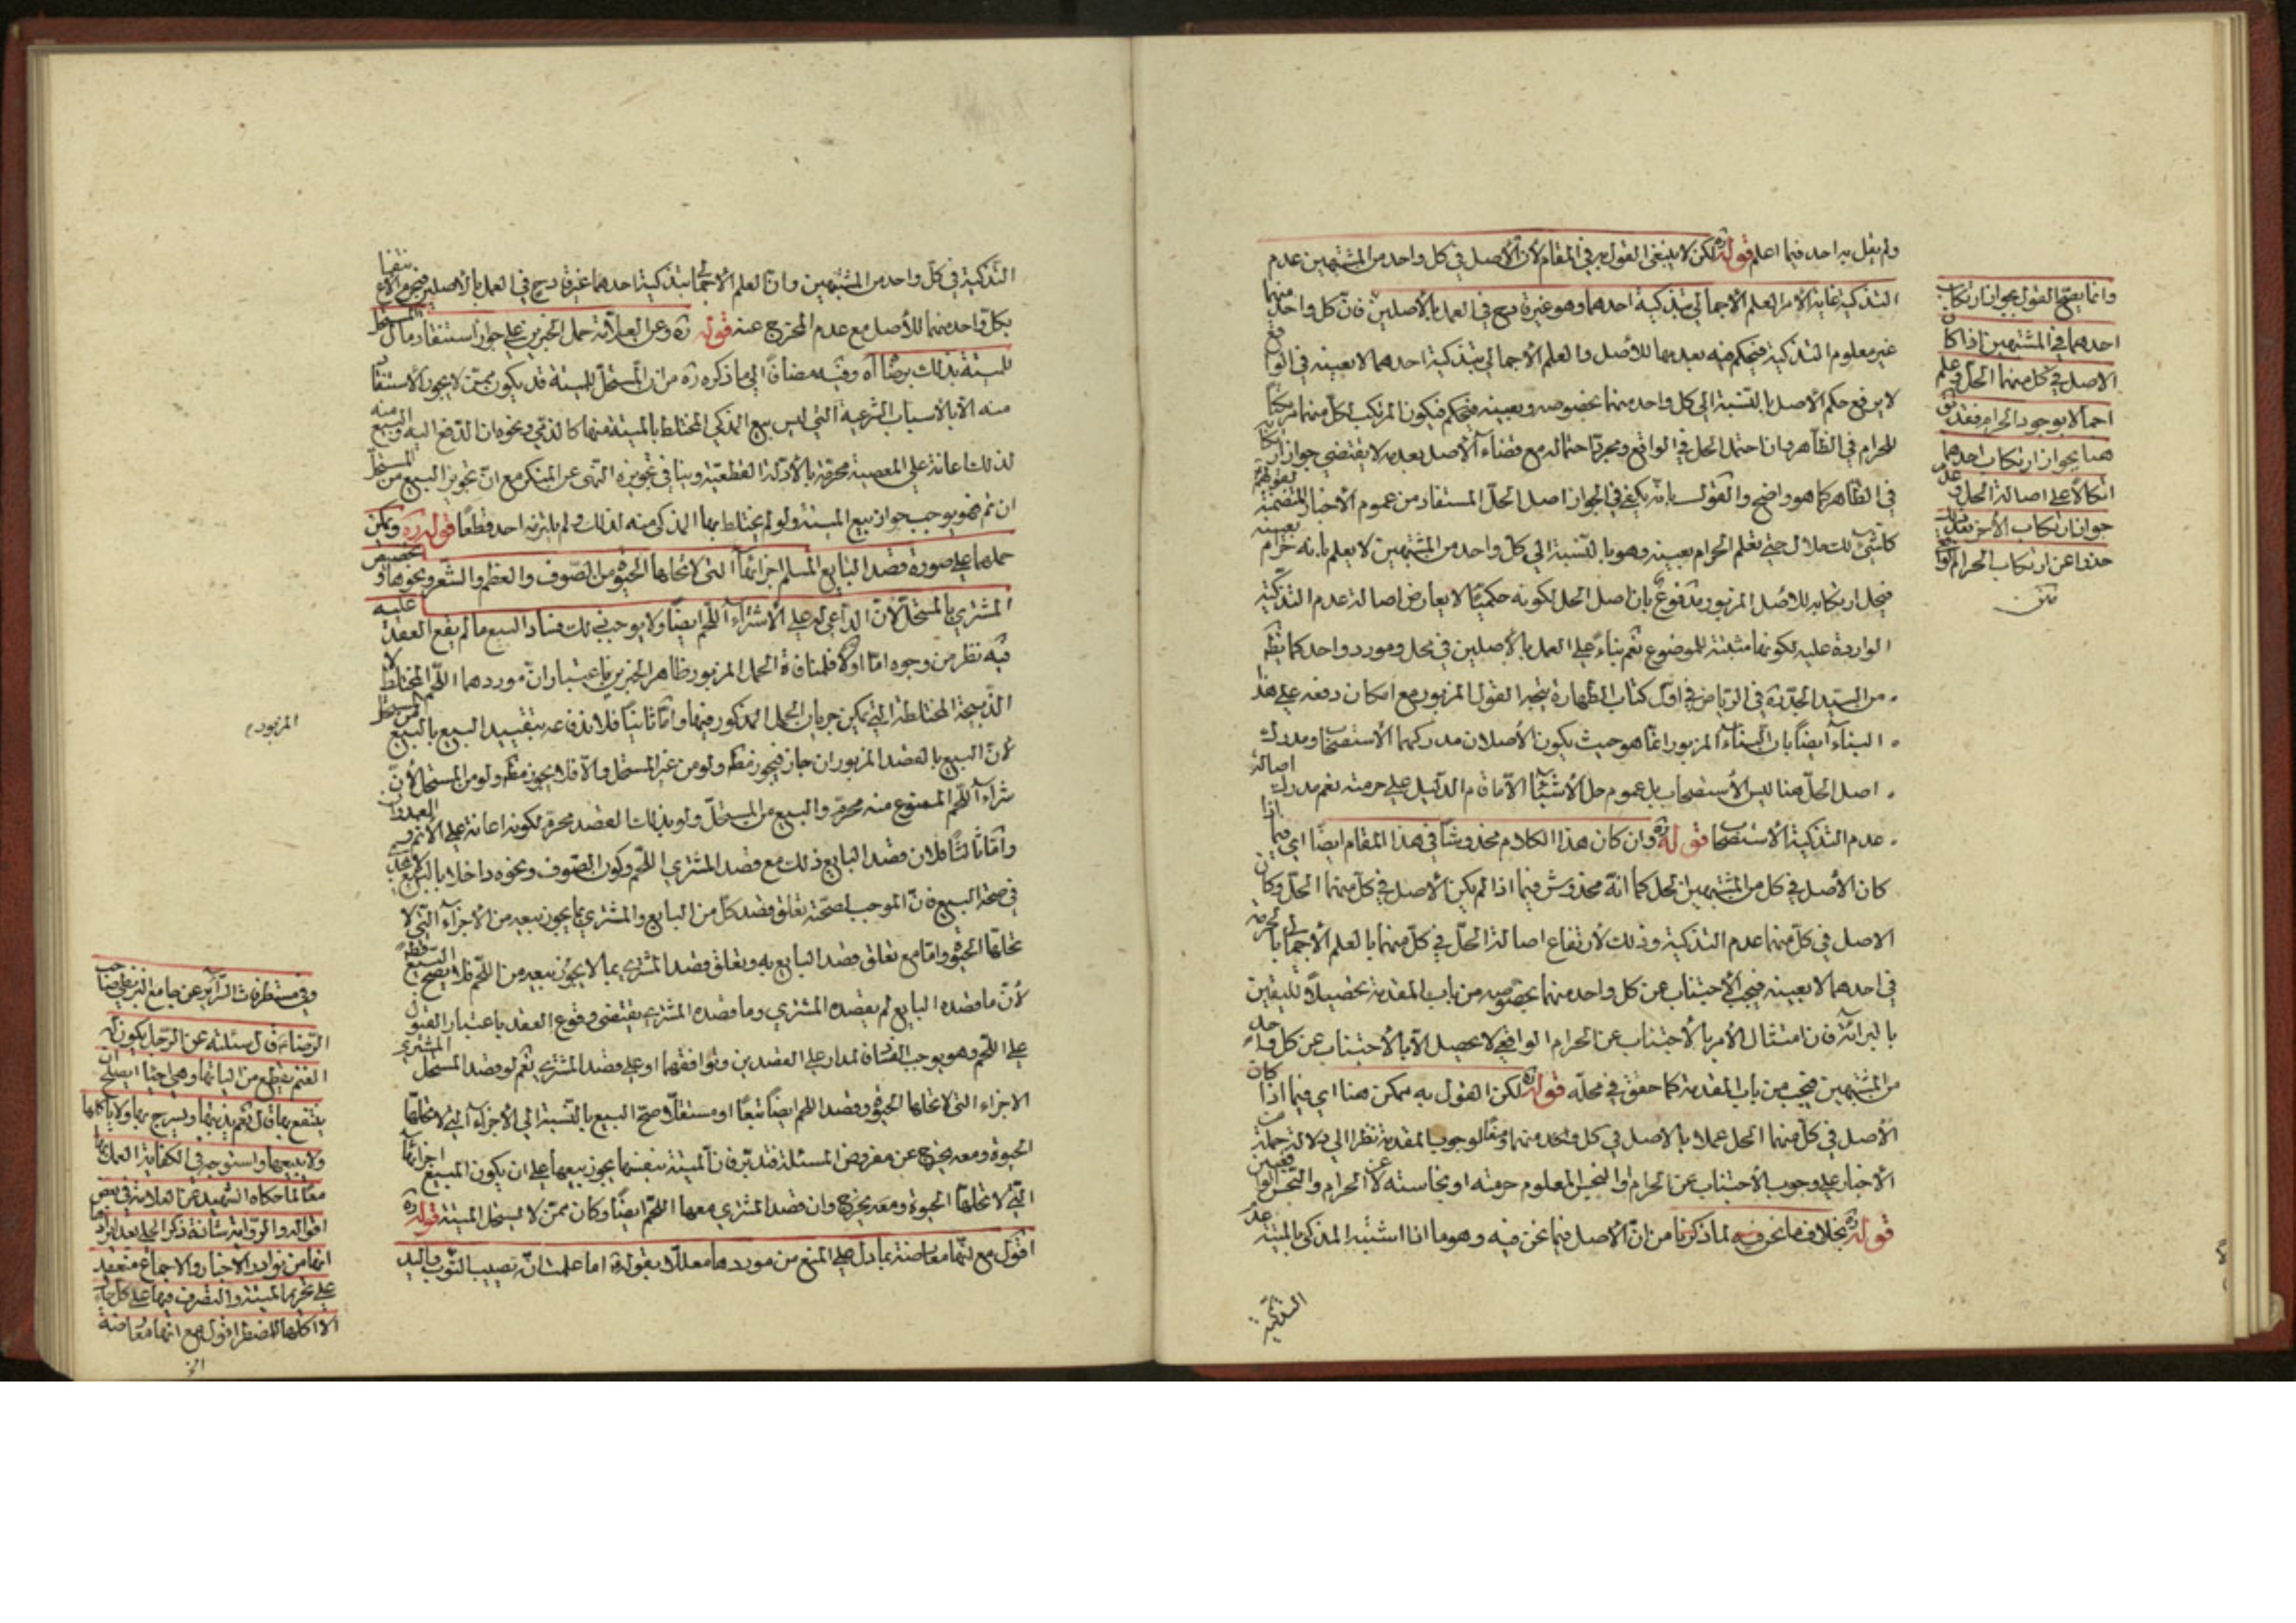 ولم يقل به احد فيما اعلم قوله ره لكن لا ينبغي القول به في المقام لأن الأصل في كل واحد من المشتبهين عدم
التذكية غاية الأمر العلم الأجمالي بتذكية احدهما وهو غير قادح في العمل بالأصلين فان كل واحد منهما
غير معلوم التذكية فيحكم فيه بعدمها للأصل والعلم الأجمالي بتذكية احدهما لا بعينه في الواقع
لا يرفع حكم الأصل بالنسبة الى كل واحد منهما بخصوصه وبعينه فيكون المرتكب لكل منهما مرتكبا
للحرام في الظاهر وان احتمل الحل في الواقع ومجرد احتماله مع قضاء الأصل بعدمه لا يقتضي جواز ارتكابه
في الظاهر كما هو واضح والقول بانه يكفي في الجواز اصل الحل المستفاد من عموم الأخبار المتضمنة لقولهم
كل شئ لك حلال حتى تعلم الحرام بعينه وهو بالنسبة الى كل واحد من المشتبهين لا يعلم بانه حرام بعينه
فيحل ارتكابه للأصل المزبور مدفوع بان اصل الحل لكونه حكميا لا يعارض اصالة عدم التذكية
الواردة عليه لكونها مثبتة للموضوع نعم بناء على العمل بالأصلين في محل ومورد واحد كما يظهر
من السيد الجد ره في الرياض في اول كتاب الطهارة يتجه القول المزبور مع امكان دفعه على هذا
البناء ايضا بان البناء المزبور انما هو حيث يكون الأصلان مدركهما الأستصحاب ومدرك
اصل الحل هنا ليس الأستصحاب بل عموم حل الأشياء الا ما قام الدليل على حرمته نعم مدرك اصالة
عدم التذكية الأستصحاب قوله ره وان كان هذا الكلام مخدوشا في هذا المقام ايضا اي فيما اذا
كان الأصل في كل من المشتبهين الحل كما انه مخدوش فيما اذا لم يكن الأصل في كل منهما الحل وكان
الاصل في كل منهما عدم التذكية وذلك لأرتفاع اصالة الحل في كل منهما بالعلم الأجمالي بالحرمة
في احدهما لا بعينه فيجب الأجتناب عن كل واحد منهما بخصوصه من باب المقدمة تحصيلا لليقين
بالبرائة فان امتثال الأمر بالأجتناب عن الحرام الواقعي لا يحصل الا بالأجتناب عن كل واحد
من المشتبهين فيجب من باب المقدمة كما حقق في محله قوله ره لكن القول به ممكن هنا اي فيما اذا كان
الأصل في كل منهما الحل عملا بالاصل في كل واحد منهما ومنعا لوجوب المقدمة نظرا الى دلالة جملة من
الأخبار على وجوب الأجتناب عن الحرام والنجس المعلوم حرمته او نجاسته لا عن الحرام والنجس الواقعيين
قوله ره بخلاف ما نحن فيه لما ذكرنا من ان الأصل فيما نحن فيه وهو ما اذا اشتبه المذكى بالميتة عدم
التذكية
وانما يصح القول بجواز ارتكاب
احدهما في المشتبهين اذا كان
الاصل في كل منهما الحل وعلم
اجمالا بوجود الحرام فقد يق
هنا بجواز ارتكاب احدهما
اتكالا على اصالة الحل وعدم
جواز ارتكاب الأخر بعد ذلك
حذرا عن ارتكاب الحرام الواقعي
متن
التذكية في كل واحد من المشتبهين وان العلم الأجمالي بتذكية احدهما غير قادح في العمل بالأصلين
بكل واحد منهما للأصل مع عدم المخرج عنه قوله ره وعن العلامة حمل الخبرين على جواز استنقاذ مال المستحل
للميتة بذلك برضاه آه وفيه مضافا الى ما ذكره ره من ان المستحل للميتة قد يكون ممن لا يجوز الأستنقاذ
منه الا بالأسباب الشرعية التي ليس بيع المذكى المختلط بالميتة منها كالذمي ونحوه ان الدفع اليه والبيع منه
لذلك اعانة على المعصية محرمة بالأدلة القطعية وينافي تجويزه النهي عن المنكر مع ان تجويز البيع من المستحل
ان تم فهو يوجب جواز بيع الميتة ولو لم يختلط بها المذكى منه لذلك ولم يلتزمه احد قطعا قوله ره ويمكن
حملهما على صورة قصد البايع المسلم اجزائها التي لا تحلها الحيوة من الصوف والعظم والشعر ونحوها وتخصيص
المشتري بالمستحل لأن الداعي له على الأشتراء اللحم ايضا ولا يوجب ذلك فساد البيع ما لم يقع العقد عليه
فيه نظر من وجوه اما اولا فلمنافاة الحمل المزبور ظاهر الخبرين باعتبار ان موردهما اللحم المختلط لا
الذبيحة المختلطة التي يمكن جريان الحمل المذكور فيها واما ثانيا فلاندفاعه بتقييد البيع بالبيع من المستحل
لأن البيع بالقصد المزبور ان جاز فيجوز مطلقا ولو من غير المستحل والا فلا يجوز مطلقا ولو من المستحل لأن
شراء اللحم الممنوع منه محرم والبيع من المستحل ولو بذلك القصد محرم لكونه اعانة على الأثم والعدوان
واما ثالثا فلان قصد البايع ذلك مع قصد المشتري اللحم وكون الصوف ونحوه داخلا بالتبع
في صحة البيع فان الموجب لصحته تعلق قصد كل من البايع والمشتري بما يجوز بيعه من الأجزاء التي لا
تحلها الحيوة واما مع تعلق قصد البايع به وتعلق قصد المشتري بما لا يجوز بيعه من اللحم فلا يصح البيع قطعا
لأن ما قصده البايع لم يقصده المشتري وما قصده المشتري يقتضي وقوع العقد باعتبار القبول
على اللحم وهو يوجب الفساد المدار على القصدين وتوافقهما او على قصد المشتري نعم لو قصد المشتري المستحل
الاجزاء التي لا تحلها الحيوة وقصد اللحم ايضا تبعا او مستقلا صح البيع بالنسبة الى الأجزاء التي لا تحلها
الحيوة ومعه يخرج عن مفروض المسئلة فتدبر فان الميتة بنفسها يجوز بيعها على ان يكون المبيع اجزائها
التي لا تحلها الحيوة ومعه يخرج وان قصد المشتري معها اللحم ايضا وكان ممن لا يستحل الميتة قوله ره
اقول مع انها معارضة بما دل على المنع من موردها معللا بقوله اما علمت انه تصيب الثوب واليد
المزبور م
وفي مستطرفات السرائر عن جامع البزنطي صاحب
الرضا ع قال سئلته عن الرجل يكون له
الغنم يقطع من الياتها وهي احياء ايصلح ان
ينتفع بها قال نعم يذيبها ويسرج بها ولا ياكلها
ولا يبيعها واستوجه في الكفاية العمل بها
تبعا لما حكاه الشهيد عن العلامة في بعض
اقواله والرواية شاذة ذكر الحلي بعد ايرادها
انها من نوادر الاخبار والاجماع منعقد
على تحريم الميتة والتصرف فيها على كل حال
الا اكلها للمضطر اقول مع انها معارضة
الخ